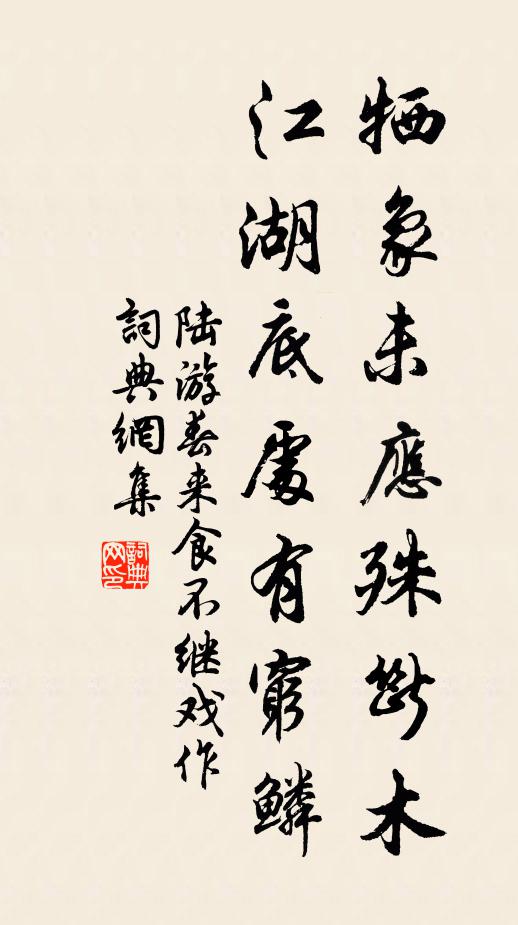 牺象未應殊斷木
江湖底處有窮鱗
陆游春来食不继戏作
詞典網集
詞典网印